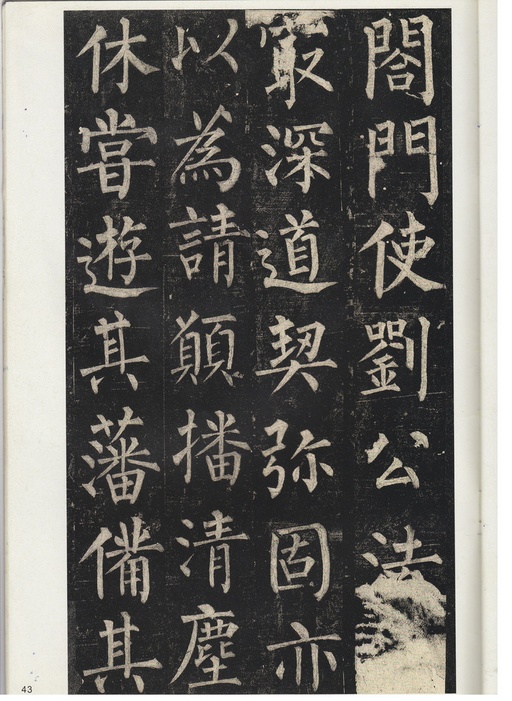 閤門使劉公法
冣深道契弥固亦
以為請願播清塵
休甞遊其藩備其
43